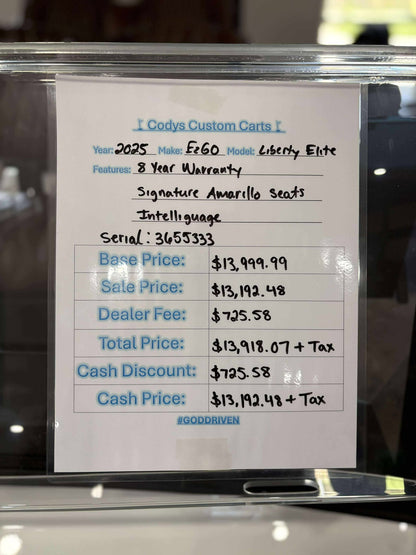 Codys Custom Carts
Year: 2025 Make: EzGO Model: Liberty Elite
Features: 8 Year Warranty
Signature Amarillo Seats
Intelliguage
Serial: 3655333
Base Price: $13,999.99
Sale Price: $13,192.48
Dealer Fee: $725.58
Total Price: $13,918.07 + Tax
Cash Discount: $725.58
Cash Price: $13,192.48 + Tax
#GODDRIVEN